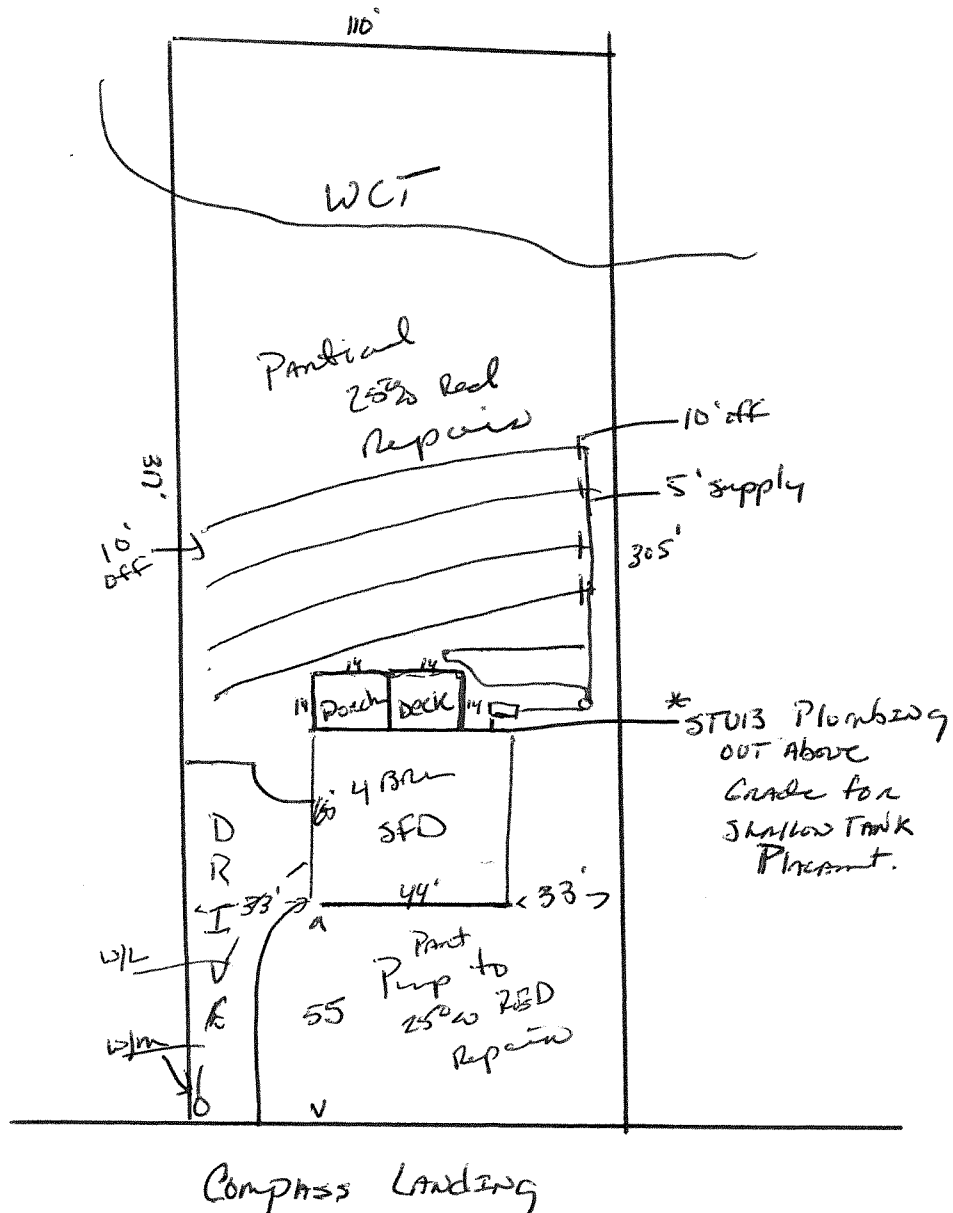 110'
WCT
Partial
25% Red
Repair
10' off
5' supply
10'
off
305'
14 14
14 Porch Deck 14
* STUB Plumbing
OUT Above
Grade for
Shallow TANK
Placement.
4 BRM
SFD
D
R
I
V
E
33'
44'
33'
W/L
W/m
55
Part
Pump to
25% RED
Repair
Compass Landing